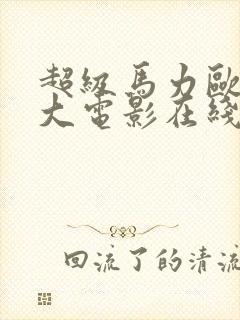 超级馬力歐
大電影在綫
回流了的清流